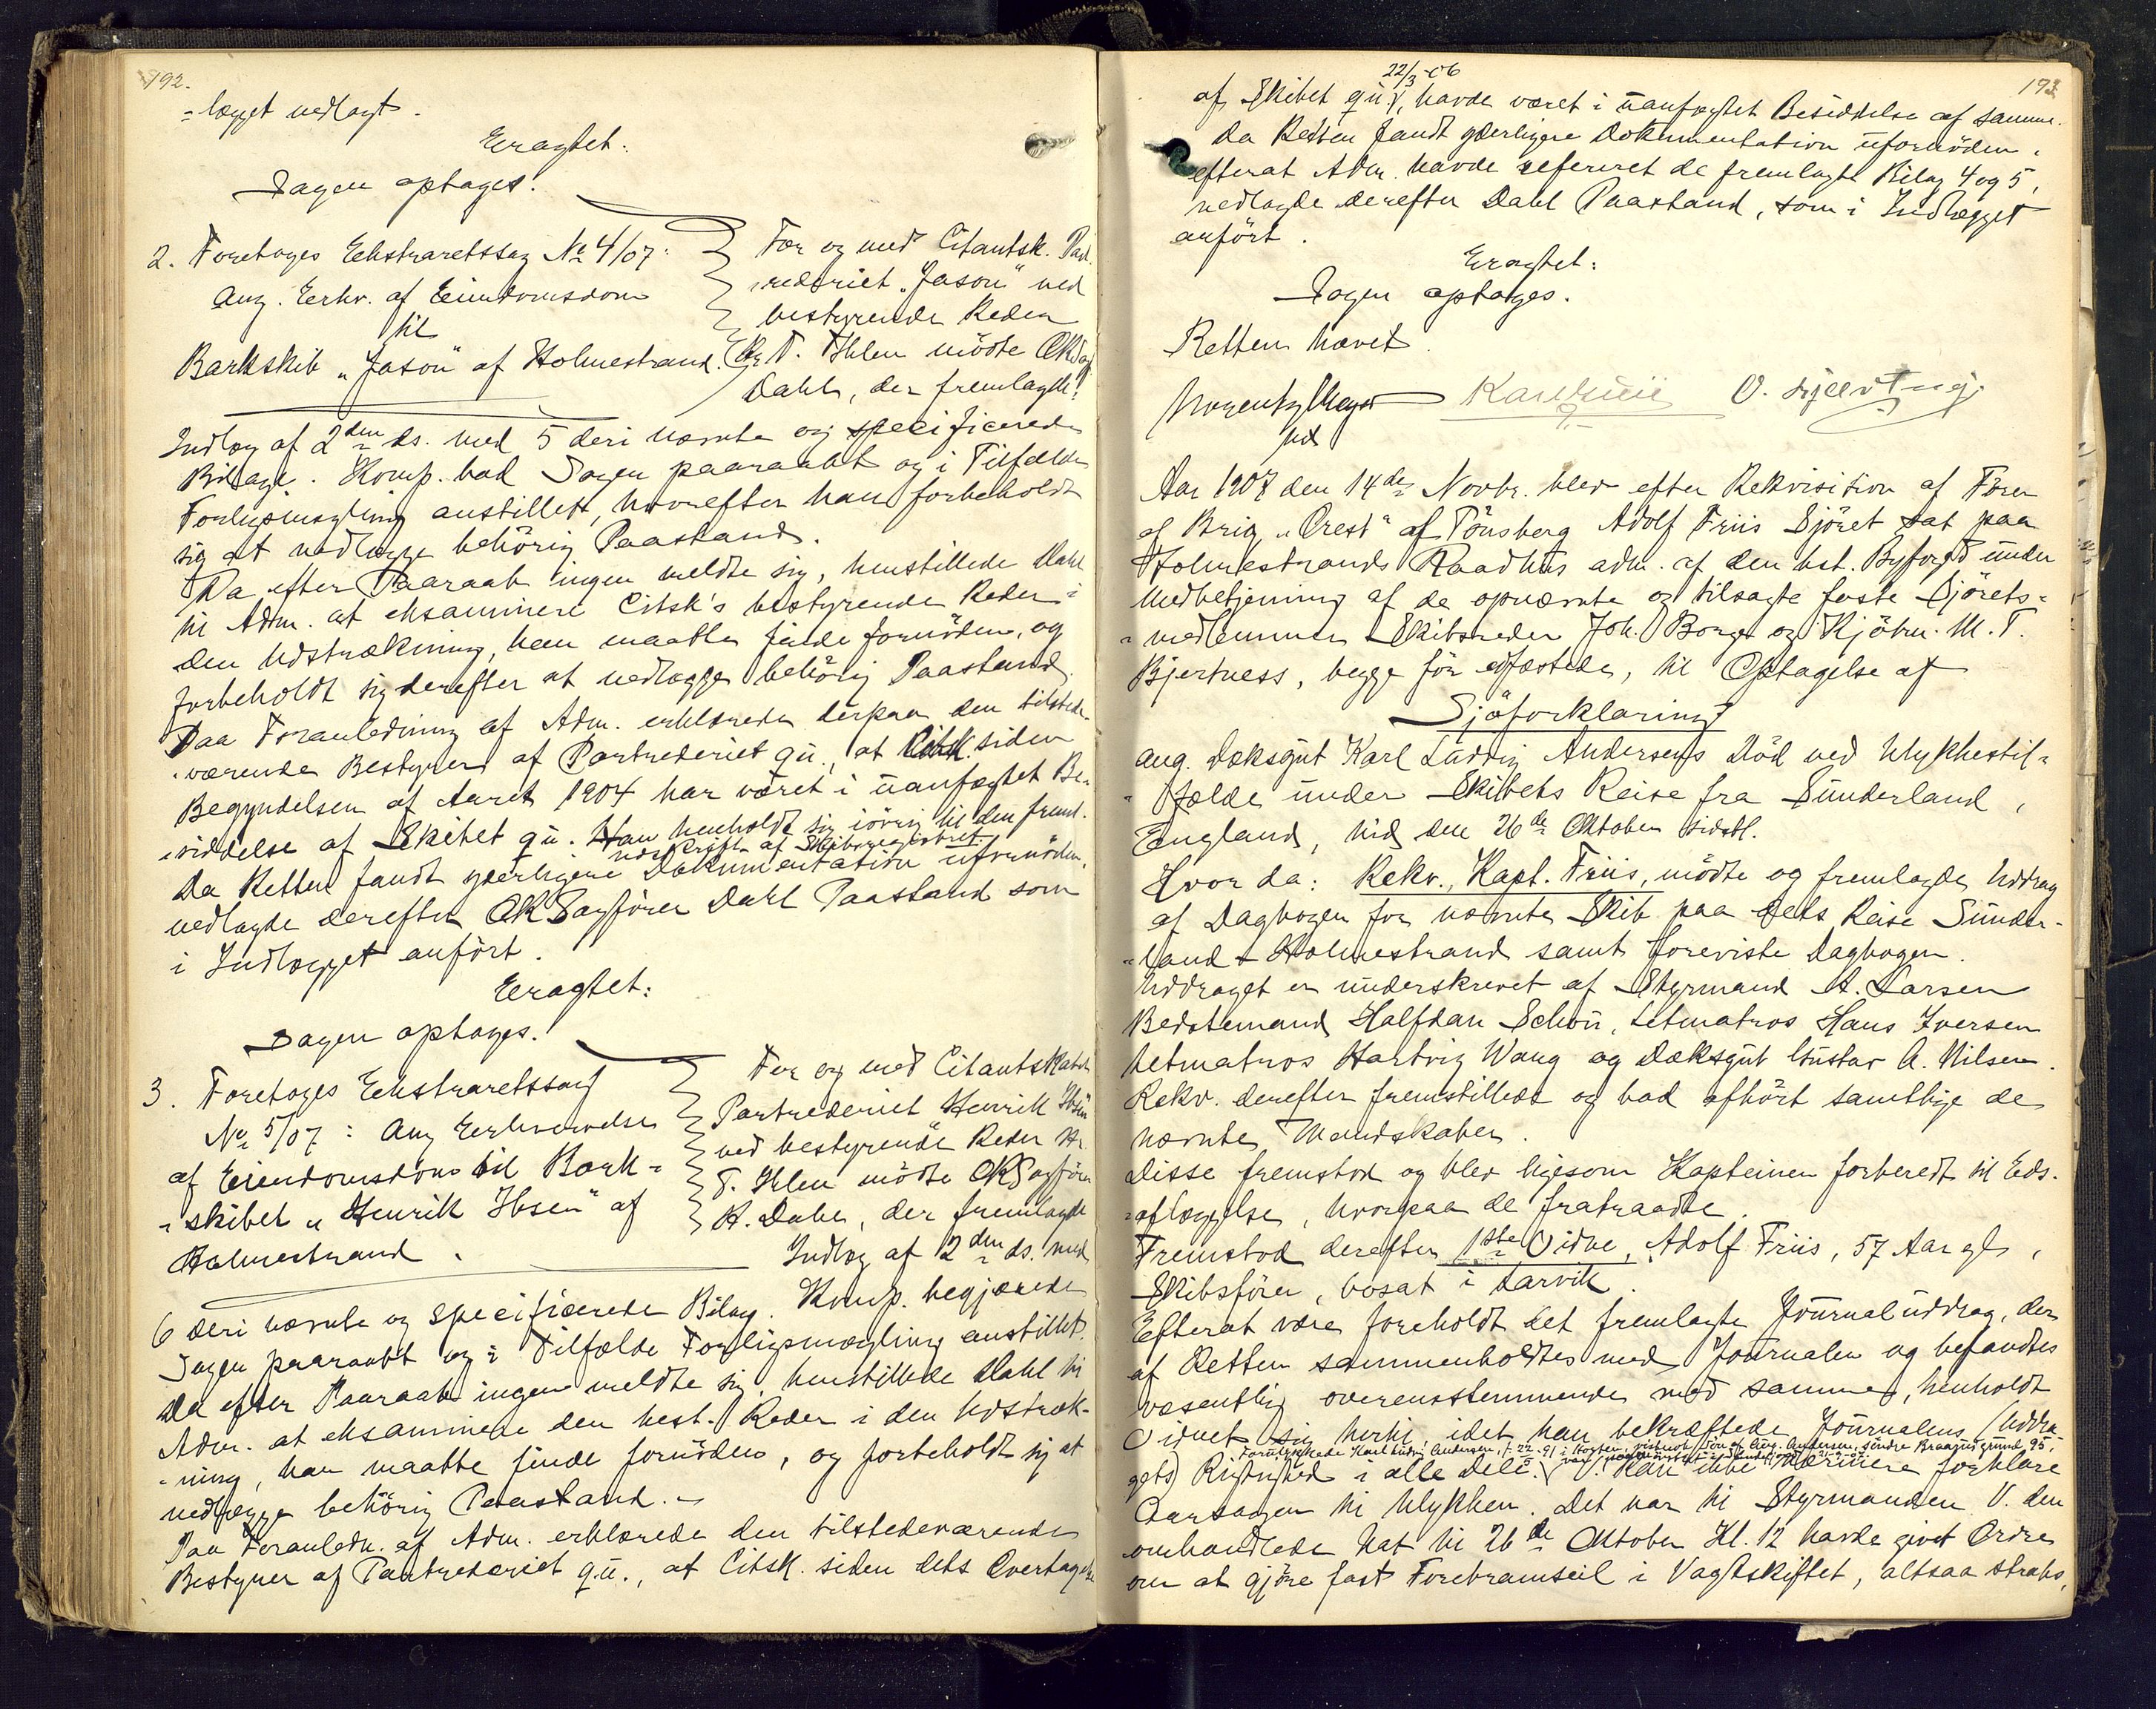 192.
=lægget nedlagt.
Eragtet:
Sagen optages.
2. Foretoges Ekstraretssag No 4/07:
ang. Eerhv. af Eiendomsdom
til
Barkskib "Jason" af Holmestrand.
For og med Citantsk. Part
rederiet "Jason" ved
bestyrende Reder
Hr. T. Ihlen mödte OKSag
Dahl, der fremlagde:
Indlæg af 2den ds. med 5 deri nævnte og specificerede
Bilage. Komp. bad Sagen paaraabt og i Tilfælde
Forligsmægling anstillet, hvorefter han forbeholdt
sig at nedlægge behörig Paastand.
Da efter Paaraab ingen meldte sig, henstillede Dahl
til Adm. at eksaminere Citsk's bestyrende Reder i
den Udstrækning, han maatte finde fornöden, og
forbeholdt sig derefter at nedlægge behörig Paastand.
Paa Foranledning af Adm. erklærede derpaa den tilstede-
værende Bestyrer af Partrederiet qu., at Citsk. siden
Begyndelsen af Aaret 1904 har været i uanfægtet Be-
siddelse af Skibet qu. Han henholdt sig iövrig til den freml.
udskrift af Skibsregistret.
Da Retten fandt yderligere Dokumentation ufornöden,
nedlagde derefter OKSagförer Dahl Paastand som
i Indlægget anfört.
Eragtet:
Sagen optages.
3. Foretoges Ekstraretssag
No 5/07: Ang Eerhvervelse
af Eiendomsdom til Bark-
skibet "Henrik Ibsen" af
Holmestrand.
For og med Citantskabet
Partrederiet Henrik Ibsen
ved bestyrende Reder Hr
T. Ihlen mödte OKSagförer
H. Dahl, der fremlagde
Indlæg af 2den ds. med
6 deri nævnte og specificerede Bilag. Komp. begjærede
Sagen paaraabt og i Tilfælde Forligsmægling anstillet.
Da efter Paaraab ingen meldte sig, henstillede Dahl til
Adm. at eksaminere den best. Reder i den Udstræk-
-ning, han maatte finde fornöden, og forbeholdt sig at
nedlægge behörig Paastand.
Paa Foranledn. af Adm. erklærede den tilstedeværende
Bestyrer af Partrederiet qu., at Citsk. siden dets Overtagelse
193
22/3-06
af Skibet qu., havde været i uanfægtet Besiddelse af samme.
Da Retten fandt yderligere Dokumentation ufornöden,
efterat Adm. havde refereret de fremlagte Bilag 4 og 5,
nedlagde derefter Dahl Paastand, som i Indlægget
anfört.
Eragtet:
Sagen optages.
Retten hævet
Aar 1907 den 14de Novbr. blev efter Rekvisition af Förer
af Brig "Orest" af Tönsberg Adolf Friis Sjöret sat paa
Holmestrands Raadhus adm. af den kst. Byfogd under
Medbetjening af de opnævnte og tilsagte faste Sjörets=
=medlemmer Skibsreder Joh. Borge og Kjöbm. M. T.
Bjertness, begge för edfæstede, til Optagelse af
Sjöforklaring
ang. Dæksgut Karl Ludvig Andersens Död ved Ulykkestil-
fælde under Skibets Reise fra Sunderland,
England, hid den 26de Oktober sidstl.
Hvor da: Rekv., Kapt. Friis, mödte og fremlagde Uddrag
af Dagbogen for nævnte Skib paa dets Reise Sunder-
=land - Holmestrand samt foreviste Dagbogen.
Uddraget er underskrevet af Styrmand A. Larsen
Bedstemand Halfdan Schou, Letmatros Hans Iversen
Letmatros Hartvig Wang og Dæksgut Gustav A. Nilsen.
Rekv. derefter fremstillede og bad afhört samtlige de
nævnte Mandskaber.
Disse fremstod og blev ligesom Kapteinen forberedt til Eds-
=aflæggelse, hvorpaa de fratraadte.
Fremstod derefter 1ste Vidne, Adolf Friis, 57 Aar gl,
Skibsförer, bosat i Larvik.
Efterat være foreholdt det fremlagte Journaluddrag, der
af Retten sammenholdtes med Journalen og befandtes
væsentlig overensstemmende med samme, henholdt
Vidnet sig hertil, idet han bekræftede Journalens (Uddra-
Forulykkede Karl Ludvig Andersen, f. 22-91 i Horten, Sön af Aug. Andersen, söndre Braarudgrund 95,
gets) Rigtighed i alle Dele. V. kan ikke nærmere forklare
Aarsagen til Ulykken. Det var til Styrmanden V. den
omhandlede Nat til 26de Oktober Kl. 12 havde givet Ordre
om at gjöre fast Forebramseil i Vagtskiftet, altsaa straks,